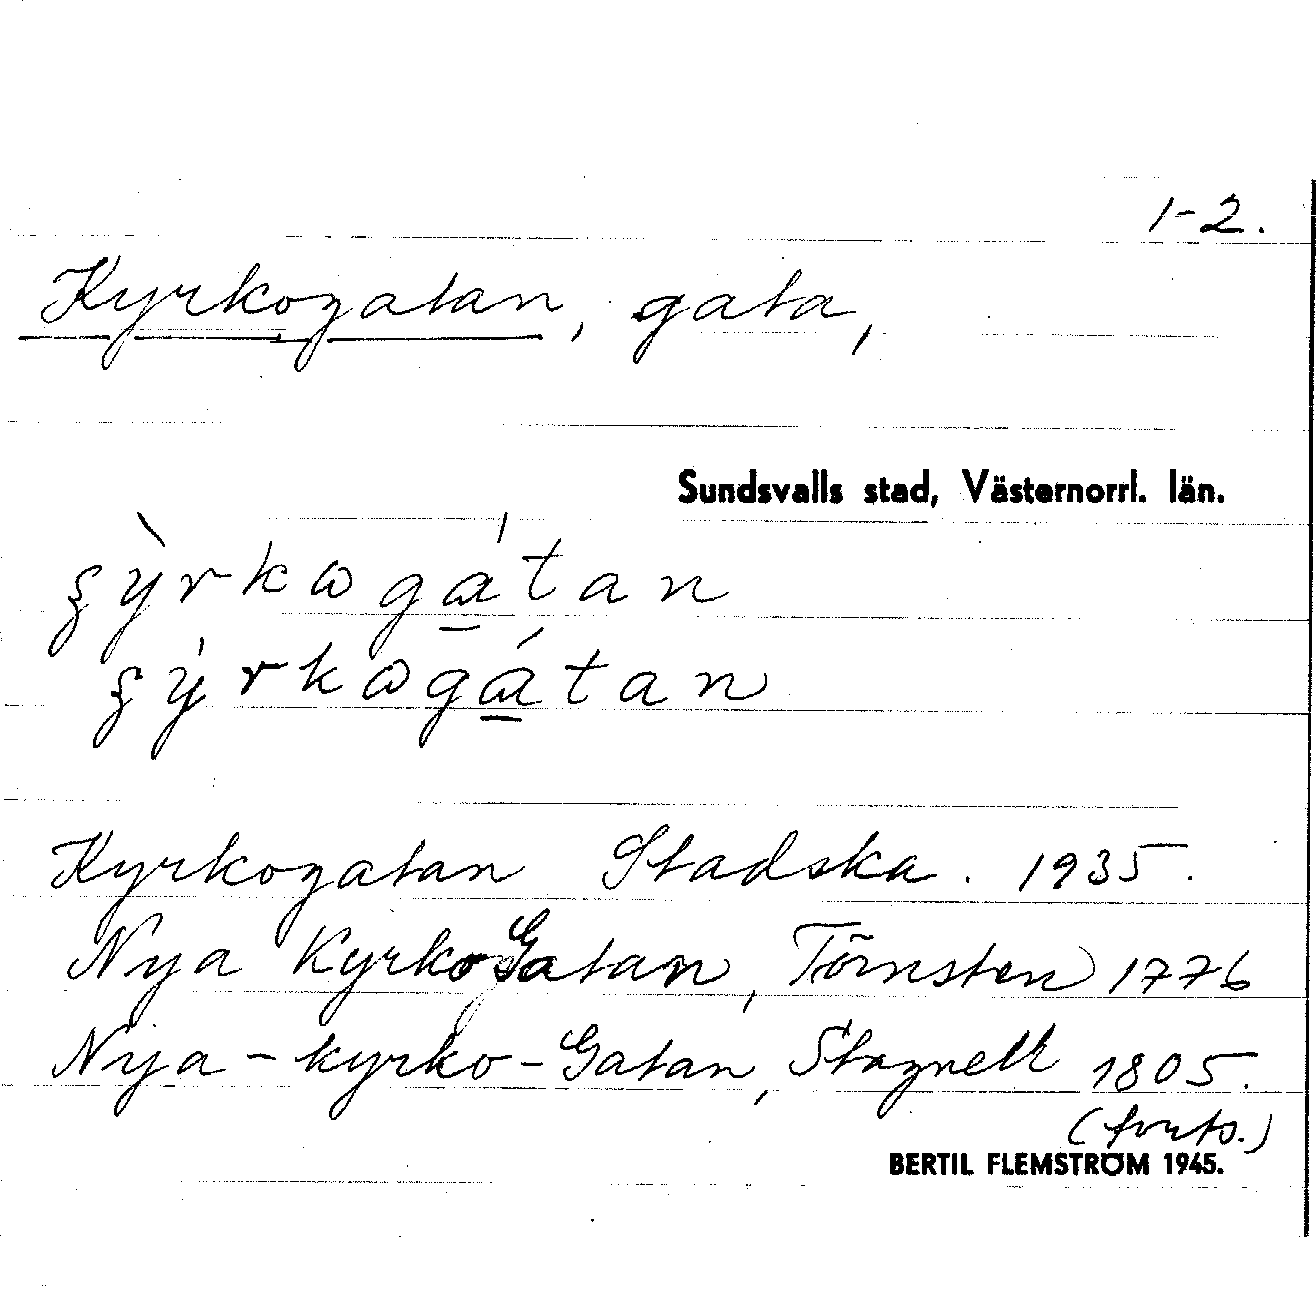 1-2.
Kyrkogatan, gata,
Sundsvalls stad, Västernorrl. län.
ʂỳrkωgátan
ʂỳrkωgátan
Kyrkogatan Stadska. 1935.
Nya KyrkoGatan, Törnsten 1776
Nya-kyrko-Gatan, Stagnell 1805.
(forts.)
BERTIL FLEMSTRÖM 1945.